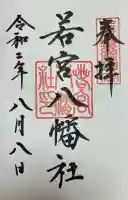 奉拝
若宮八幡社
令和二年八月八日